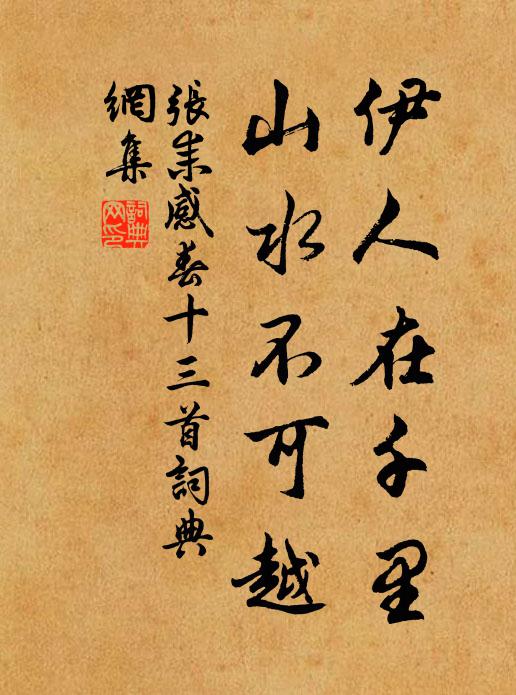 伊人在千里
山水不可越
張耒感春十三首詞典
網集
詞典
網印